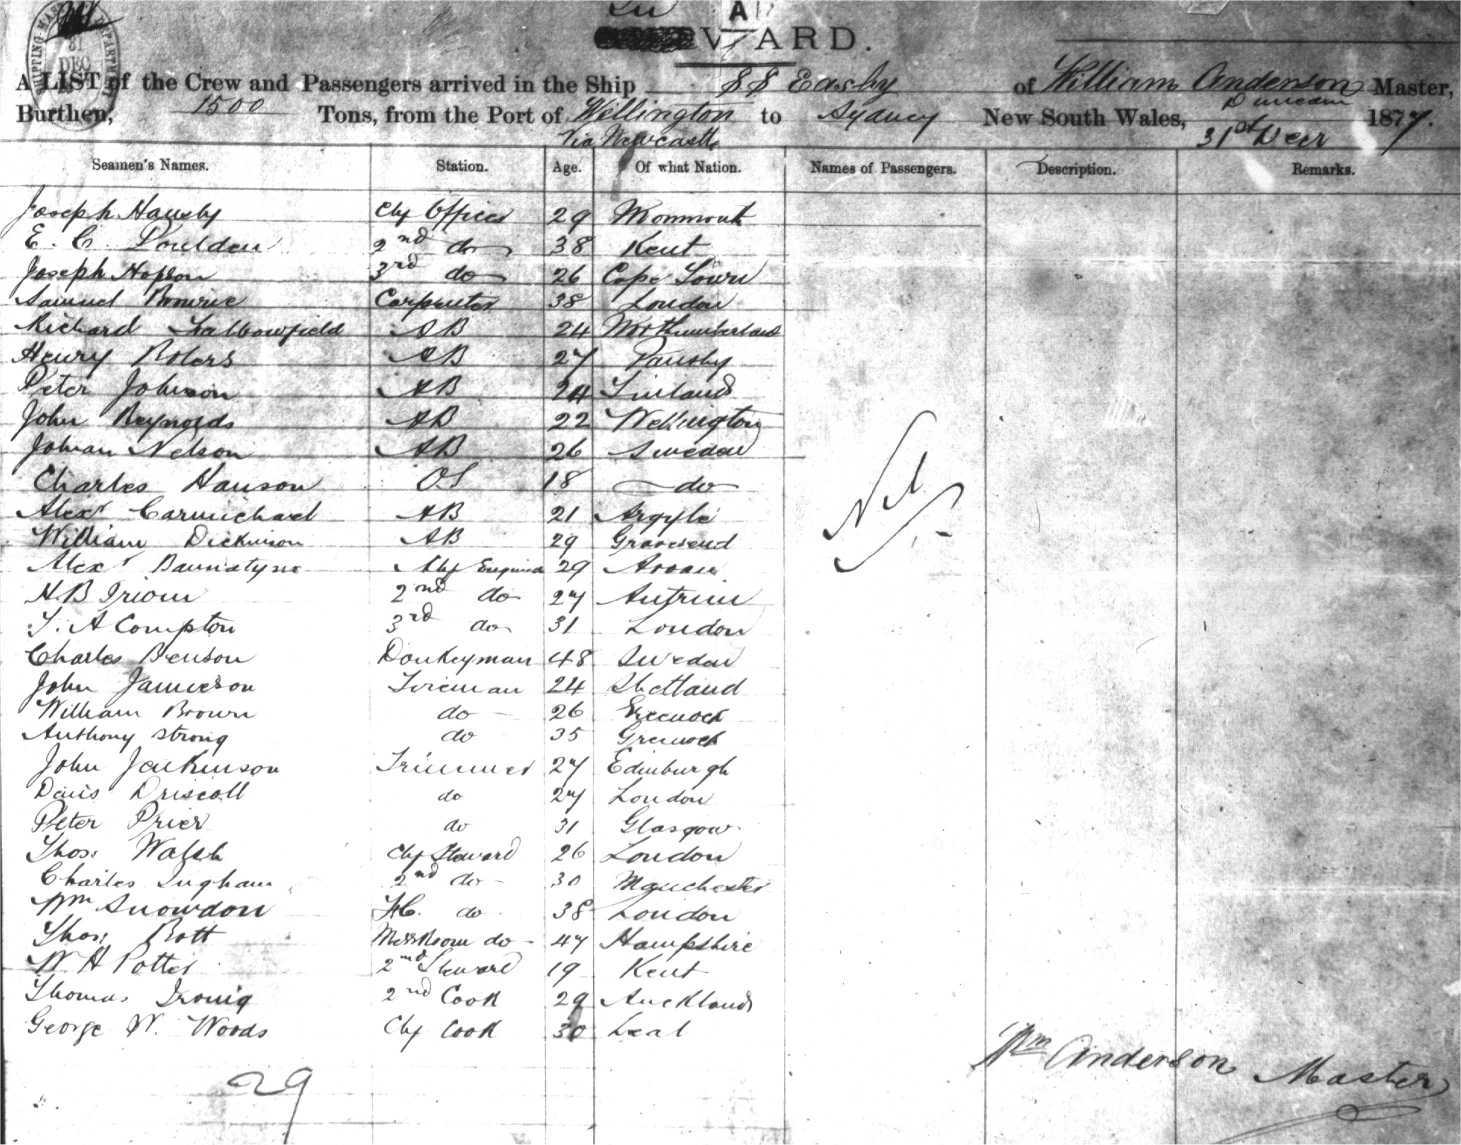 A
V ARD.
SHIPPING MASTER'S DEPARTMENT
31
DEC
A LIST of the Crew and Passengers arrived in the Ship SS Easby of William Anderson Master,
Duncan
Burthen, 1500 Tons, from the Port of Willington to Sydney New South Wales, 31st Decr 1877.
via Newcastle
Seamen's Names. Station. Age. Of what Nation. Names of Passengers. Description. Remarks.
Joseph Hansby Chf Officer 29 Monmouth
E. C. Poulden 2nd do 38 Kent
Joseph Hopson 3rd do 26 Cape Town
Samuel Carpenter 38 London
Richard AB 24 Northumberland
Henry AB 27
Peter Johnson AB 24 Finland
John Reynolds AB 22 Wellington
Johan Nelson AB 26 Sweden
Charles Hanson OS 18 do
Alexr Carmichael AB 21 Argyle
William Dickinson AB 29 Gravesend
Alexr Bannatyne Chf Engineer 29 Arran
H B 2nd do 27 Antrim
T. A Compton 3rd do 31 London
Charles Benson Donkeyman 48 Sweden
John Jamieson Fireman 24 Shetland
William Brown do 26 Greenock
Anthony Strong do 35 Greenock
John Jenkinson Trimmer 27 Edinburgh
Denis Driscoll do 27 London
Peter Prier do 31 Glasgow
Thos. Walsh Chf Steward 26 London
Charles Ingham 2nd do 30 Manchester
Wm Snowdon do 38 London
Thos. Bott Messroom do 47 Hampshire
W H Potter 2nd Steward 19 Kent
Thomas 2nd Cook 29 Auckland
George W. Woods Chf Cook 30
Nil
Wm Anderson Master
29